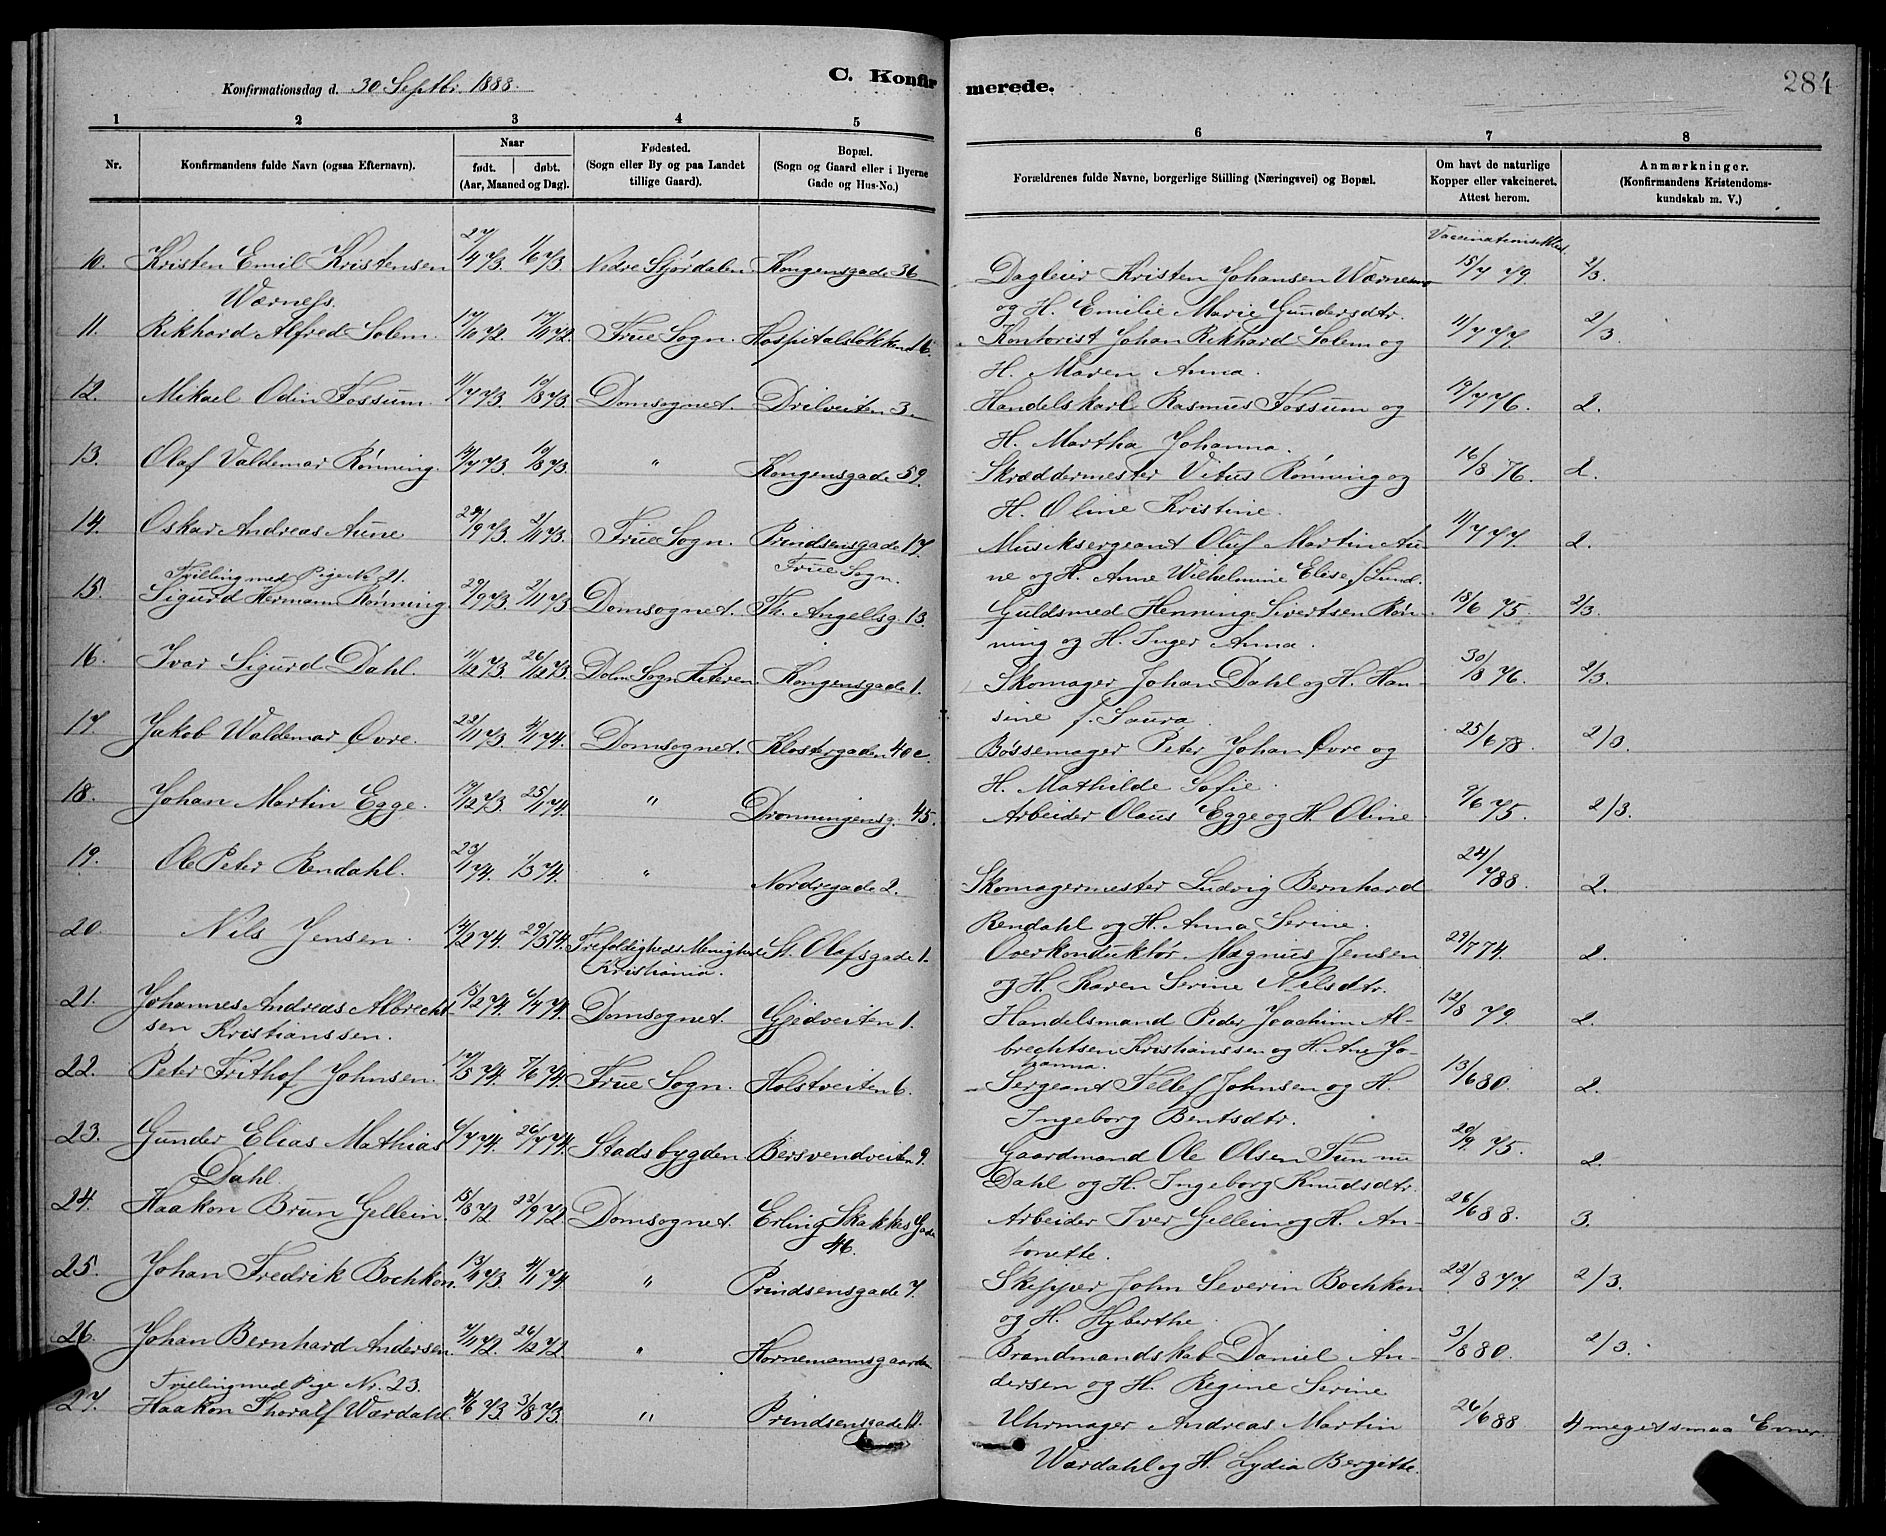 Konfirmationsdag d. 30 Septbr. 1888.
C. Konfirmerede.
284
1 2 3 4 5 6 7 8
Nr.
Konfirmandens fulde Navn (ogsaa Efternavn).
Naar
født. døbt.
(Aar, Maaned og Dag).
Fødested.
(Sogn eller By og paa Landet
tillige Gaard).
Bopæl.
(Sogn og Gaard eller i Byerne
Gade og Hus-No.)
Forældrenes fulde Navne, borgerlige Stilling (Næringsvei) og Bopæl.
Om havt de naturlige
Kopper eller vakcineret.
Attest herom.
Anmærkninger.
(Konfirmandens Kristendoms-
kundskab m. V.)
Vaccinationsattest.
10. Kristen Emil Kristensen 27/4 73. 1/6 73. Nedre Stjørdalen Kongensgade 36 Dagleier Kristen Johansen Wærness 15/7 79. 2/3.
Wærness. og H. Emilie Marie Gundersdtr.
11. Rikhard Alfred Solem. Frue Sogn. Hospitalsløkken 16. Kontorist Johan Rikhard Solem og 11/7 77. 2/3.
H. Maren Anna.
12. Mikael Odin Fossum. 11/7 73. 10/8 73. Domsognet. Drilveiten 3. Handelskarl Rasmus Fossum og 19/7 76. 2.
H. Martha Johanna.
13. Olaf Valdemar Rønning. 14/7 73. 10/8 73. " Kongensgade 59. Skræddermester Vitus Rønning og 16/8 76. 2.
H. Oline Kristine.
14. Oskar Andreas Aune 22/9 73. 2/11 73. Frue Sogn. Prindsensgade 17. Musiksergeant Oluf Martin Au- 11/7 77. 2.
Frue Sogn. ne og H. Anne Wilhelmine Elise f. Lund.
Tvilling med Pige Nr. 21.
15. Sigurd Hermann Rønning. 29/9 73. 2/11 73. Domsognet. Th. Angellsg. 13. Guldsmed Henning Sivertsen Røn- 18/6 75. 2/3.
ning og H. Inger Anna.
16. Ivar Sigurd Dahl. 11/12 73. 26/12 73. Dolm Sogn Hiteren. Kongensgade 1. Skomager Johan Dahl og H. Han- 30/8 76. 2/3.
sine f. Saura.
17. Jakob Waldemar Øvre. 22/11 73. 4/1 74. Domsognet. Klostergaden 40c. Bøssemager Peter Johan Øvre og 25/6 78. 2/3.
H. Mathilde Sofie.
18. Johan Martin Egge. 17/12 73. 25/1 74. " Dronningensg. 45. Arbeider Olaus Egge og H. Oline 9/6 75. 2/3.
19. Ole Peter Rendahl. 23/1 74. 1/3 74. " Nordregade 2. Skomagermester Ludvig Bernhard 24/7 88. 2.
Rendahl og H. Anna Serine.
20. Nils Jensen. 14/2 74. 29/3 74. Trefoldigheds Menighed St. Olafsgade 1. Overkonduktør Magnus Jensen 29/7 74. 2.
Kristiania. og H. Karen Serine Nilsdtr.
21. Johannes Andreas Albrecht- 15/2 74. 6/4 74. Domsognet. Gjedveiten 1. Handelsmand Peder Joachim Al- 12/8 79. 2.
sen Kristianssen. brechtsen Kristianssen og H. Ane Jo-
hanna.
22. Peter Frithof Johnsen. 17/5 74. 7/6 74. Frue Sogn. Holstveiten 6. Sergeant Tellef Johnsen og H. 13/6 80. 2.
Ingeborg Bentsdtr.
23. Gunder Elias Mathias 6/7 74. 26/7 74. Stadsbygden. Bersvendveiten 9. Gaardmand Ole Olsen 20/9 75. 2.
Dahl Dahl og H. Ingeborg Knudsdtr.
24. Haakon Brun Gellein. 15/8 72. 22/9 72. Domsognet. Erling Skakkes Gade Arbeider Iver Gellein og H. An- 26/6 88. 3.
46. tonette.
25. Johan Fredrik Bochkon. 13/11 73. 4/1 74. " Prindsensgade 7. Skipper John Severin Bochkon 22/8 77. 2/3.
og H. Hyberthe.
26. Johan Bernhard Andersen. 7/11 72. 26/12 72. " Hornemannsgaarden Brandmandskab Daniel An- 3/8 80. 2/3.
dersen og H. Regine Serine
Tvilling med Pige Nr. 23.
27. Haakon Thoralf Wærdahl. 4/6 73. 3/8 73. " Prindsensgade 11. Uhrmager Andreas Martin 26/6 88 4 meget smaa Evner.
Wærdahl og H. Lydia Bergitte.